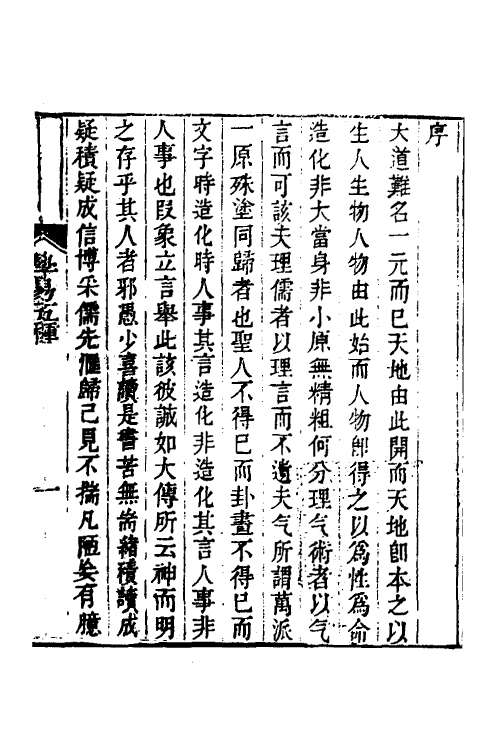 序
大道難名一元而巳天地由此開而天地卽本之以
生人生物人物由此始而人物卽得之以爲性爲命
造化非大當身非小原無精粗何分理气術者以气
言而可該夫理儒者以理言而不遺夫气所謂萬派
一原殊塗同歸者也聖人不得巳而卦畫不得巳而
文字時造化時人事其言造化非造化其言人事非
人事也叚象立言舉此該彼誠如大傳所云神而明
之存乎其人者邪憑少喜讀是書苦無耑緒積讀成
疑積疑成信博采儒先滙歸己見不揣凡陋矣有臆
學易五種
一